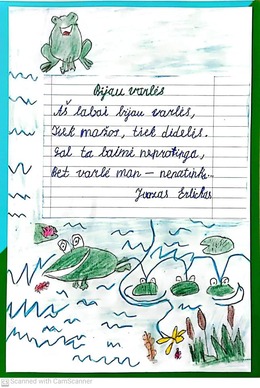 Bijau varlės
Aš labai bijau varlės,
Tiek mažos, tiek didelės.
Gal ta baimė neprotinga,
Bet varlė man – nenatinka...
Juozas Erlickas
Scanned with CamScanner